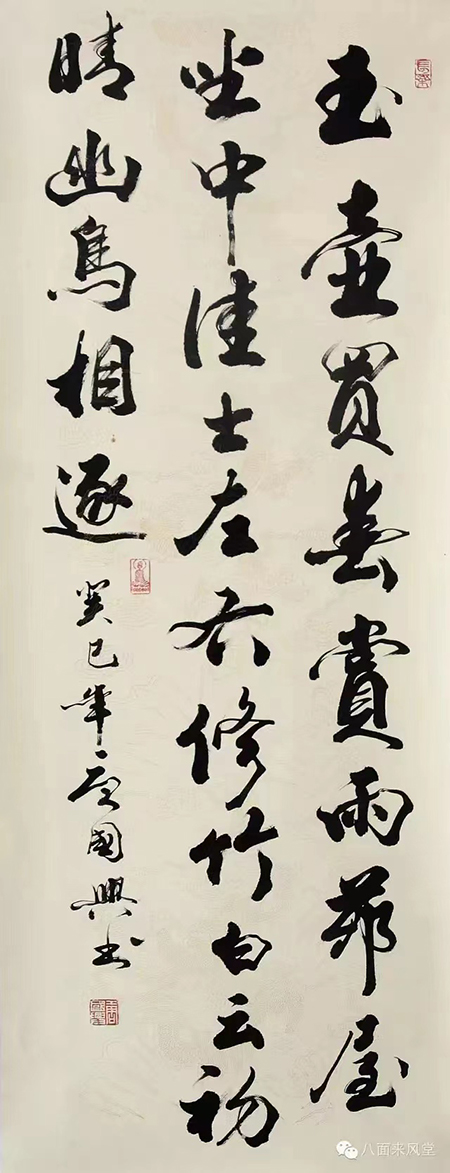 玉壺買春賞雨茆屋
坐中佳士左右修竹白云初
晴幽鳥相逐
癸巳年國興书
八面来风堂